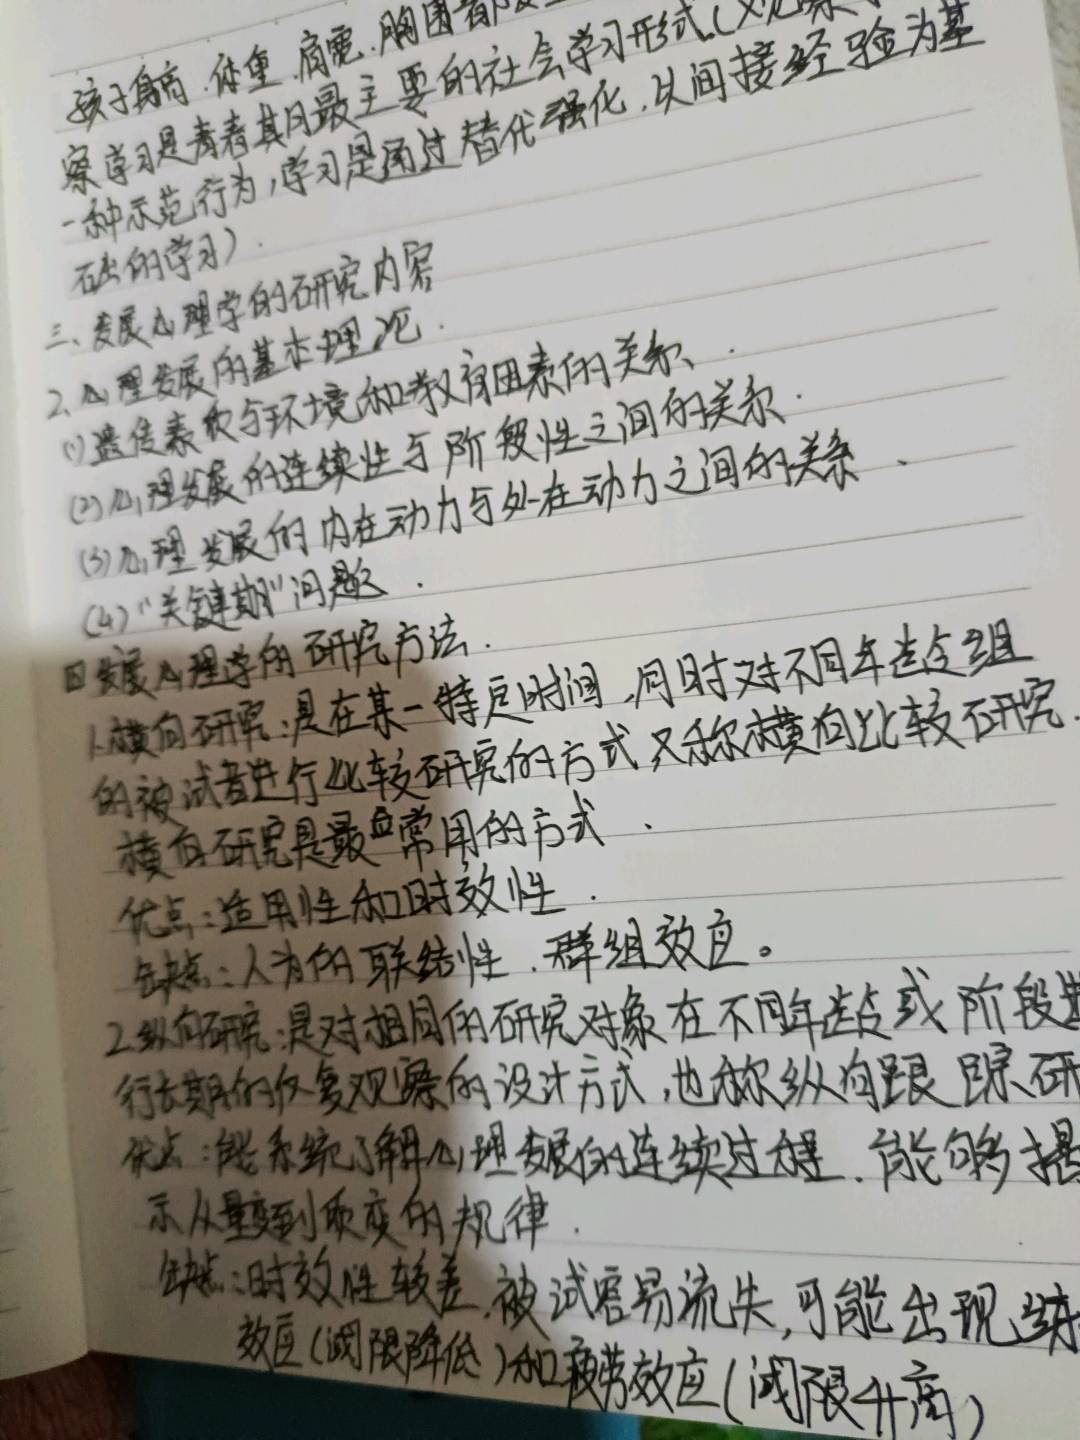 孩子身高.体重.肩宽.胸围都
察学习是青春期最主要的社会学习形式.(观察
一种示范行为,学习是通过替代强化.以间接经验为基
础的学习).
三、发展心理学的研究内容
2、心理发展的基本理论.
(1)遗传素质与环境和教育因素的关系、.
(2)心理发展的连续性与阶段性之间的关系.
(3)心理发展的内在动力与外在动力之间的关系、
(4)“关键期”问题.
四发展心理学的研究方法.
1.横向研究:是在某一特定时间,同时对不同年龄组
的被试者进行比较研究的方式又称横向比较研究.
横向研究是最常用的方式.
优点:适用性和时效性.
缺点:人为的联结性.群组效应。
2.纵向研究:是对相同的研究对象在不同年龄或阶段进
行长期的反复观察的设计方式,也称纵向跟踪研
优点:能系统了解心理发展的连续过程.能够揭
示从量变到质变的规律.
缺点:时效性较差.被试容易流失,可能出现练
效应(阈限降低)和疲劳效应(阈限升高)